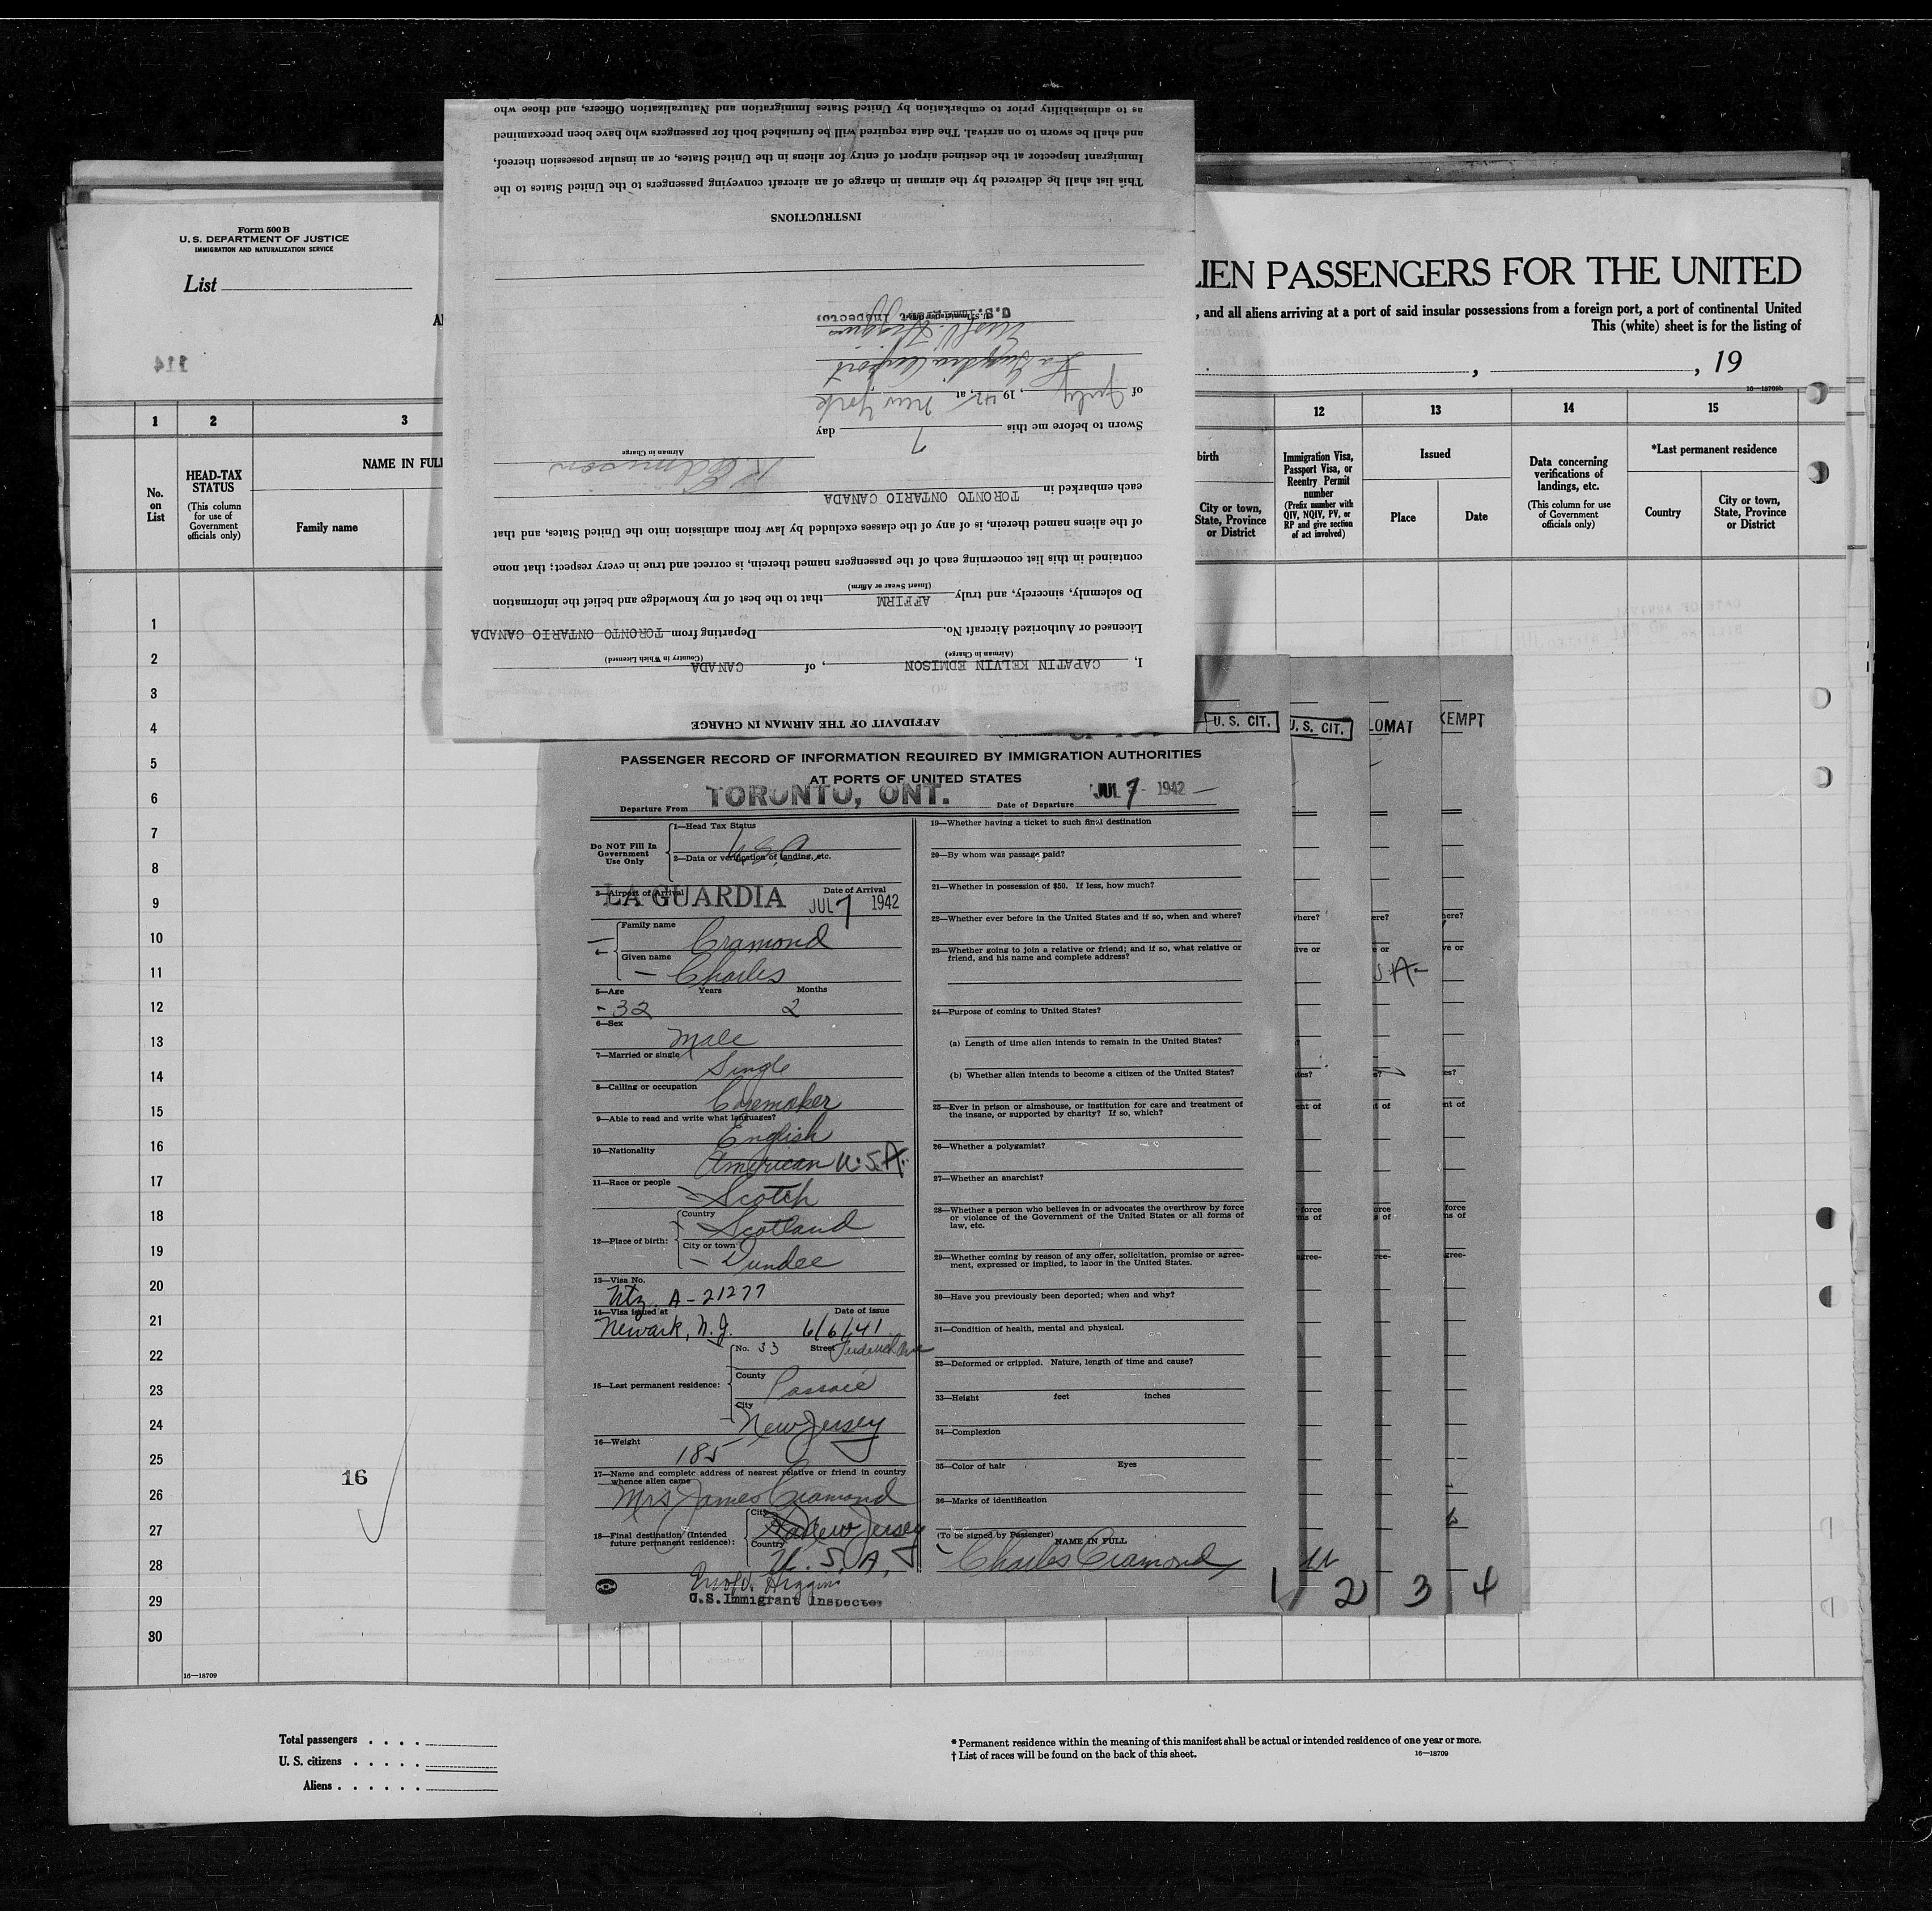 Form 500 B
U. S. DEPARTMENT OF JUSTICE
IMMIGRATION AND NATURALIZATION SERVICE
List
114
LIEN PASSENGERS FOR THE UNITED
, and all aliens arriving at a port of said insular possessions from a foreign port, a port of continental United
This (white) sheet is for the listing of
, , 19
16—18709b
1 2 3 12 13 14 15
No. on List
HEAD-TAX STATUS
(This column for use of Government officials only)
NAME IN FULL
Family name
birth
City or town, State, Province or District
Immigration Visa, Passport Visa, or Reentry Permit number
(Prefix number with QIV, NQIV, PV, or RP and give section of act involved)
Issued
Place Date
Data concerning verifications of landings, etc.
(This column for use of Government officials only)
*Last permanent residence
Country
City or town, State, Province or District
1
2
3
4
5
6
7
8
9
10
11
12
13
14
15
16
17
18
19
20
21
22
23
24
25
26
27
28
29
30
16
16—18709
Total passengers . . . .
U. S. citizens . . . . .
Aliens . . . . . .
* Permanent residence within the meaning of this manifest shall be actual or intended residence of one year or more.
† List of races will be found on the back of this sheet.
16—18709
AFFIDAVIT OF THE AIRMAN IN CHARGE
I, CAPATIN KELVIN EDMISON, of CANADA
(Airman in Charge) (Country in Which Licensed)
Licensed or Authorized Aircraft No. Departing from TORONTO ONTARIO CANADA
Do solemnly, sincerely, and truly AFFIRM that to the best of my knowledge and belief the information
(Insert Swear or Affirm)
contained in this list concerning each of the passengers named therein, is correct and true in every respect; that none
of the aliens named therein, is of any of the classes excluded by law from admission into the United States, and that
each embarked in TORONTO ONTARIO CANADA
K Edmison
Airman in Charge
Sworn to before me this 7 day
of July, 1942, at New York
La Guardia Airport
Higgins
U.S. Immigrant Inspector
INSTRUCTIONS
This list shall be delivered by the airman in charge of an aircraft conveying passengers to the United States to the
Immigrant Inspector at the destined airport of entry for aliens in the United States, or an insular possession thereof,
and shall be sworn to on arrival. The data required will be furnished both for passengers who have been preexamined
as to admissibility prior to embarkation by United States Immigration and Naturalization Officers, and those who
U. S. CIT.
U. S. CIT.
LOMAT
XEMPT
PASSENGER RECORD OF INFORMATION REQUIRED BY IMMIGRATION AUTHORITIES
AT PORTS OF UNITED STATES
Departure From TORONTO, ONT. Date of Departure JUL 7 - 1942
Do NOT Fill In Government Use Only
1—Head Tax Status
U.S.C.
2—Data or verification of landing, etc.
3—Airport of Arrival LA GUARDIA Date of Arrival JUL 7 1942
Family name Cramond
Given name Charles
5—Age 32 Years 2 Months
6—Sex Male
7—Married or single Single
8—Calling or occupation Casemaker
9—Able to read and write what languages? English
10—Nationality American U.S.A.
11—Race or people Scotch
12—Place of birth: Country Scotland
City or town Dundee
13—Visa No. Ntz. A-21277
14—Visa issued at Newark, N.J. Date of issue 6/6/41
15—Last permanent residence: No. 33 Street
County Passaic
City New Jersey
16—Weight 185
17—Name and complete address of nearest relative or friend in country whence alien came
Mrs James Cramond
18—Final destination (Intended future permanent residence): City New Jersey
Country U. S. A.
Higgins
U.S. Immigrant Inspector
19—Whether having a ticket to such final destination
20—By whom was passage paid?
21—Whether in possession of $50. If less, how much?
22—Whether ever before in the United States and if so, when and where?
23—Whether going to join a relative or friend; and if so, what relative or
friend, and his name and complete address?
24—Purpose of coming to United States?
(a) Length of time alien intends to remain in the United States?
(b) Whether alien intends to become a citizen of the United States?
25—Ever in prison or almshouse, or institution for care and treatment of
the insane, or supported by charity? If so, which?
26—Whether a polygamist?
27—Whether an anarchist?
28—Whether a person who believes in or advocates the overthrow by force
or violence of the Government of the United States or all forms of
law, etc.
29—Whether coming by reason of any offer, solicitation, promise or agree-
ment, expressed or implied, to labor in the United States.
30—Have you previously been deported; when and why?
31—Condition of health, mental and physical.
32—Deformed or crippled. Nature, length of time and cause?
33—Height feet inches
34—Complexion
35—Color of hair Eyes
36—Marks of identification
(To be signed by Passenger) NAME IN FULL
Charles Cramond
1 2 3 4